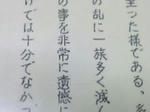 至った様である、多
の乱に一族多く滅ん
の事を非常に遺憾に
けでは十分でなか